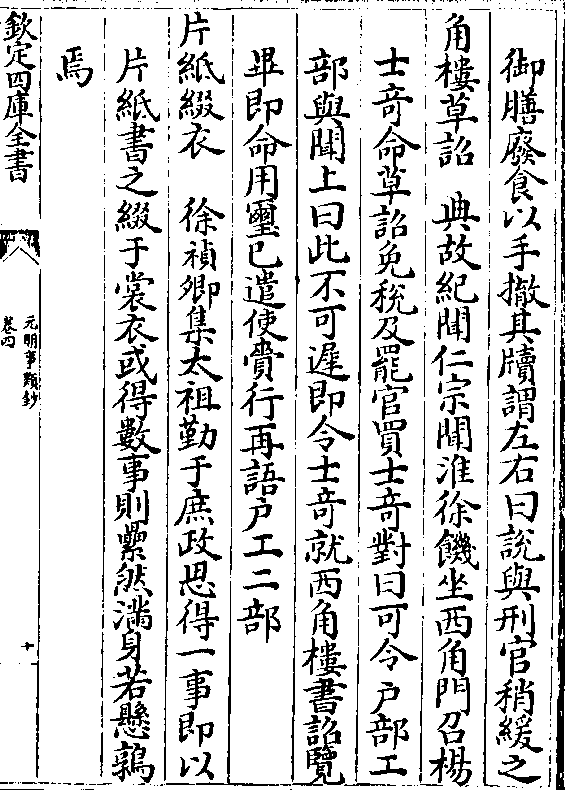 御膳廢食以手撤其牘謂左右曰說與刑官稍緩之
角樓草詔　典故紀聞仁宗聞淮徐饑坐西角門召楊
士竒命草詔免稅及罷官買士竒對曰可令户部工
部與聞上曰此不可遲即令士竒就西角樓書詔覽
畢即命用璽已遣使賫行再語户工二部
片紙綴衣　徐禎卿集太祖勤于庶政思得一事即以
片紙書之綴于裳衣或得數事則纍然滿身若懸鶉
焉
欽定四庫全書
元明事類鈔
卷四
十